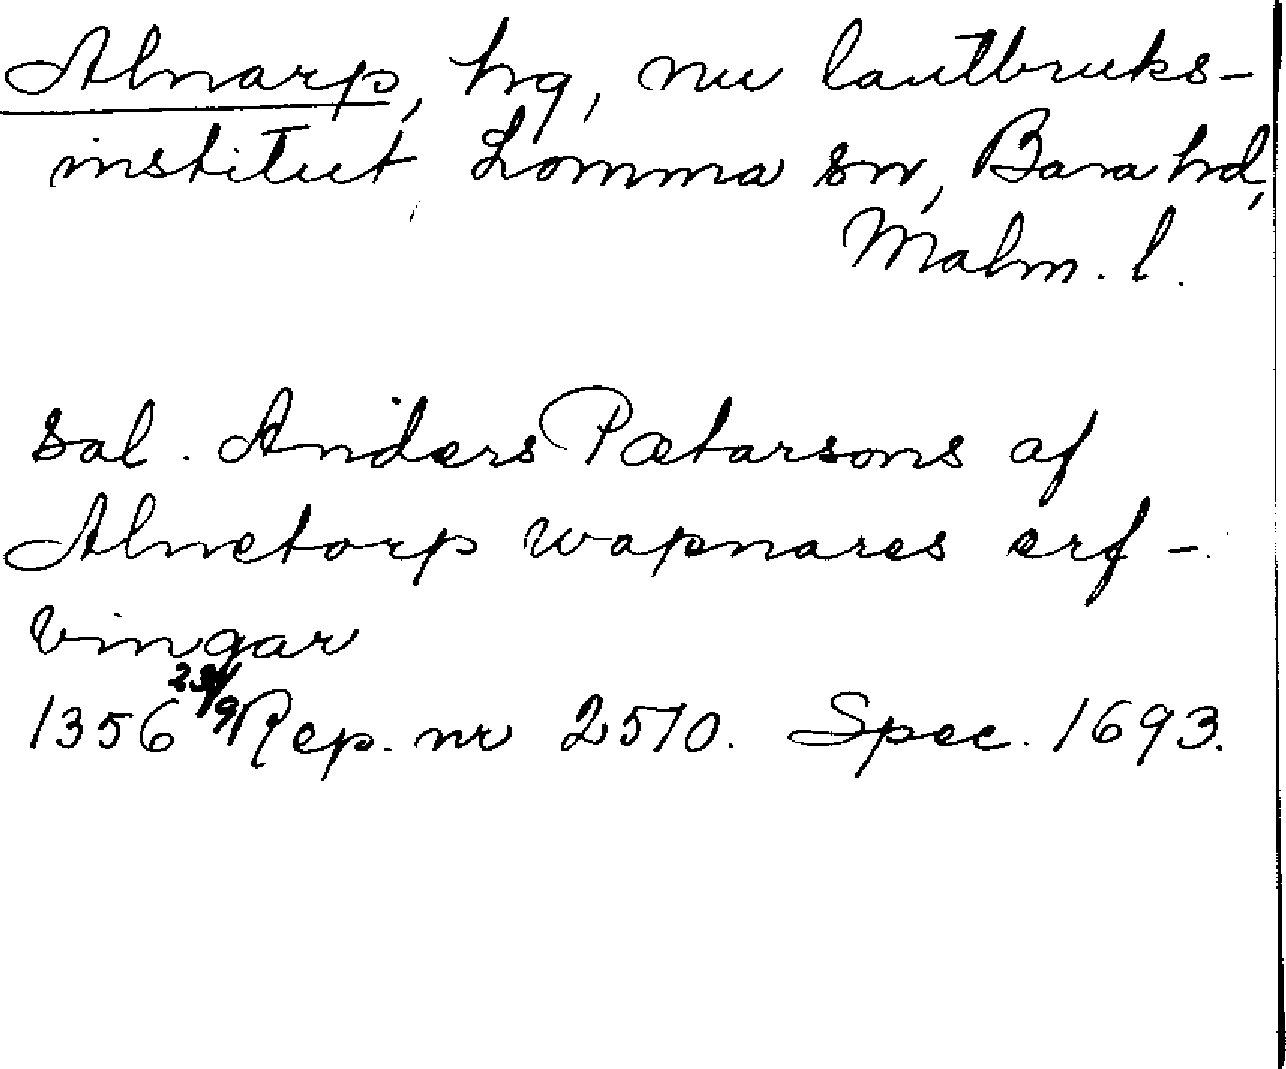 Alnarp, hg, nu lantbruks-
institut, Lomma sn, Bara hd,
Malm. l.
sal. Anders Pætarsons af
Alnetorp wapnares erf-
vingar
1356 23/9 Rep. nr 2570. Spec. 1693.